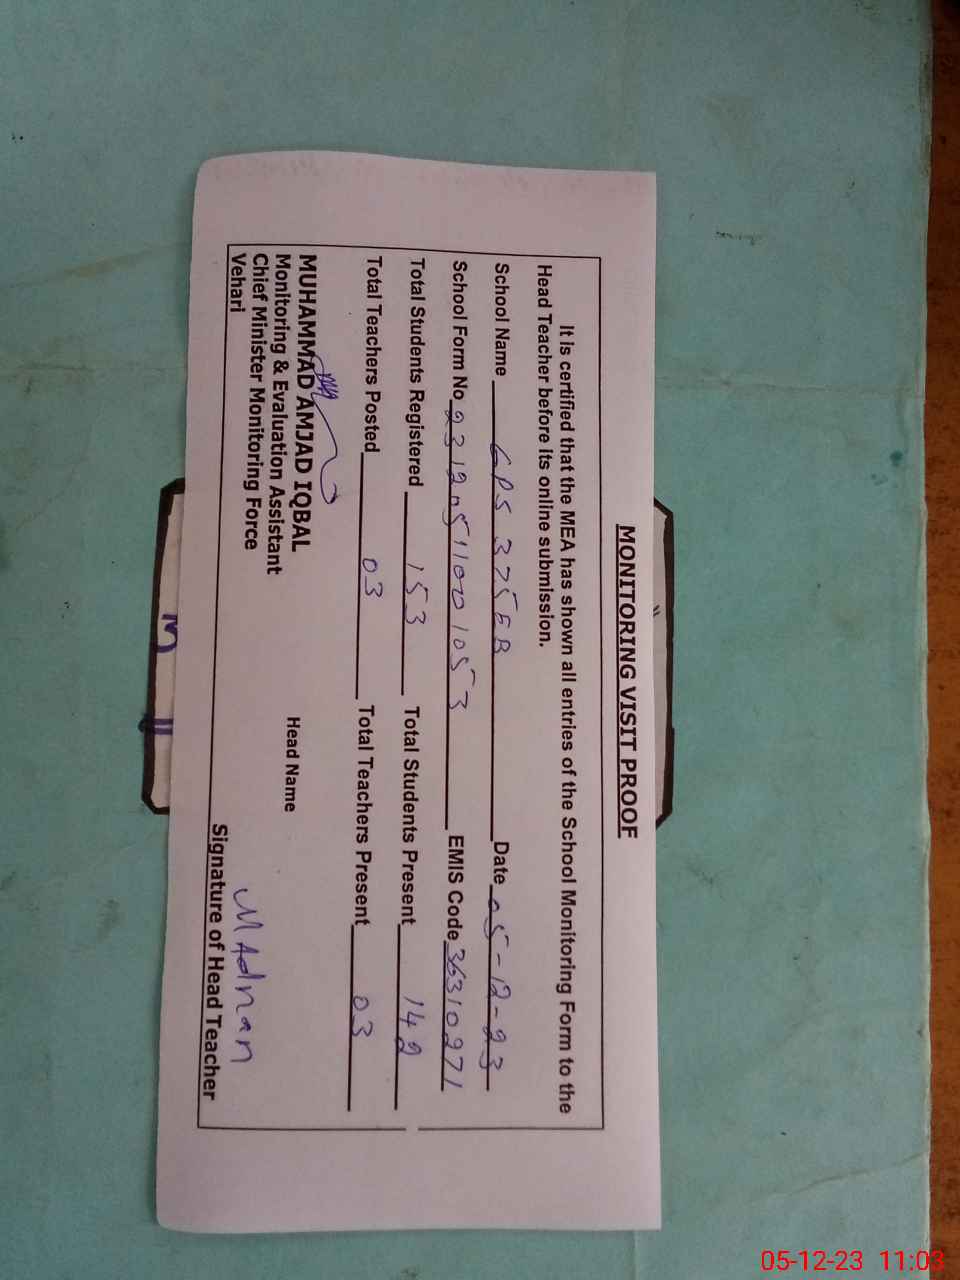 MONITORING VISIT PROOF
It is certified that the MEA has shown all entries of the School Monitoring Form to the
Head Teacher before its online submission.
School Name GPS 375 EB Date 05-12-23
School Form No 231205110010553 EMIS Code 36310271
Total Students Registered 153 Total Students Present 142
Total Teachers Posted 03 Total Teachers Present 03
MUHAMMAD AMJAD IQBAL
Monitoring & Evaluation Assistant
Chief Minister Monitoring Force
Vehari
Head Name
M Adnan
Signature of Head Teacher
05-12-23 11:03